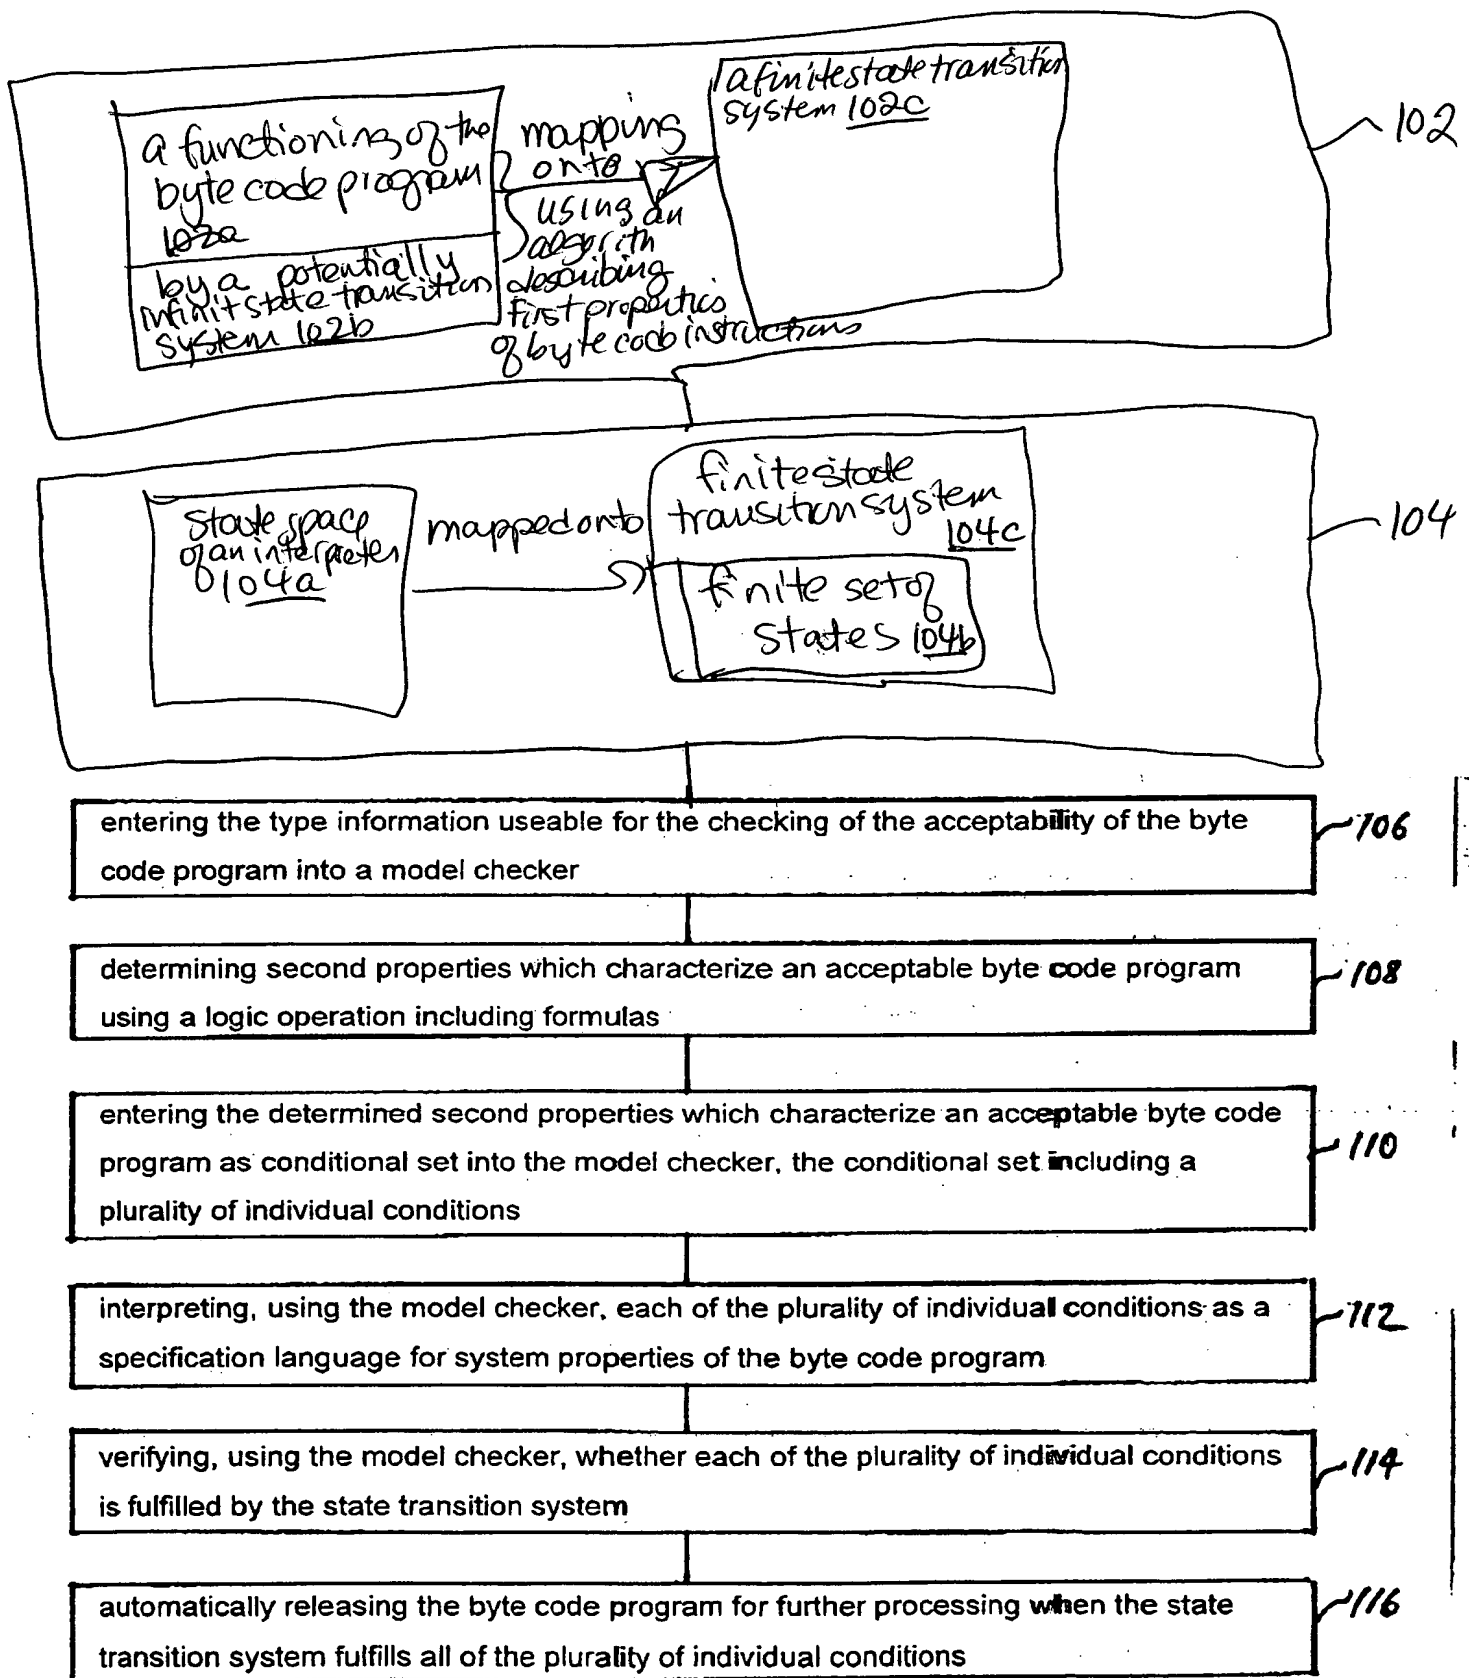 a functioning of the
byte code program
102a
by a potentially
infinit state transition
system 102b
mapping
onto
using an
algorith
describing
first properties
of byte code instructions
a finite state transition
system 102c
102
state space
of an interpreter
104a
mapped onto
finite state
transition system
104c
finite set of
states 104b
104
entering the type information useable for the checking of the acceptability of the byte
code program into a model checker
106
determining second properties which characterize an acceptable byte code program
using a logic operation including formulas
108
entering the determined second properties which characterize an acceptable byte code
program as conditional set into the model checker, the conditional set including a
plurality of individual conditions
110
interpreting, using the model checker, each of the plurality of individual conditions as a
specification language for system properties of the byte code program
112
verifying, using the model checker, whether each of the plurality of individual conditions
is fulfilled by the state transition system
114
automatically releasing the byte code program for further processing when the state
transition system fulfills all of the plurality of individual conditions
116